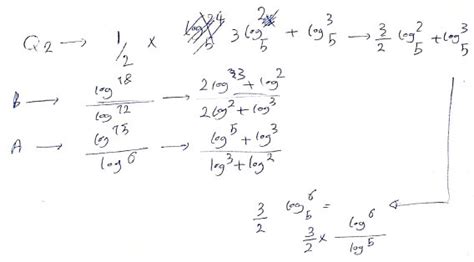 Q2 → 1/2 × 3 log₅² + log₅³ → 3/2 log₅² + log₅³
B → log¹⁸/log¹² → 2log³ + log²/2log² + log³
A → log¹⁵/log⁶ → log⁵ + log³/log³ + log²
3/2 log₅⁶ =
3/2 × log⁶/log⁵